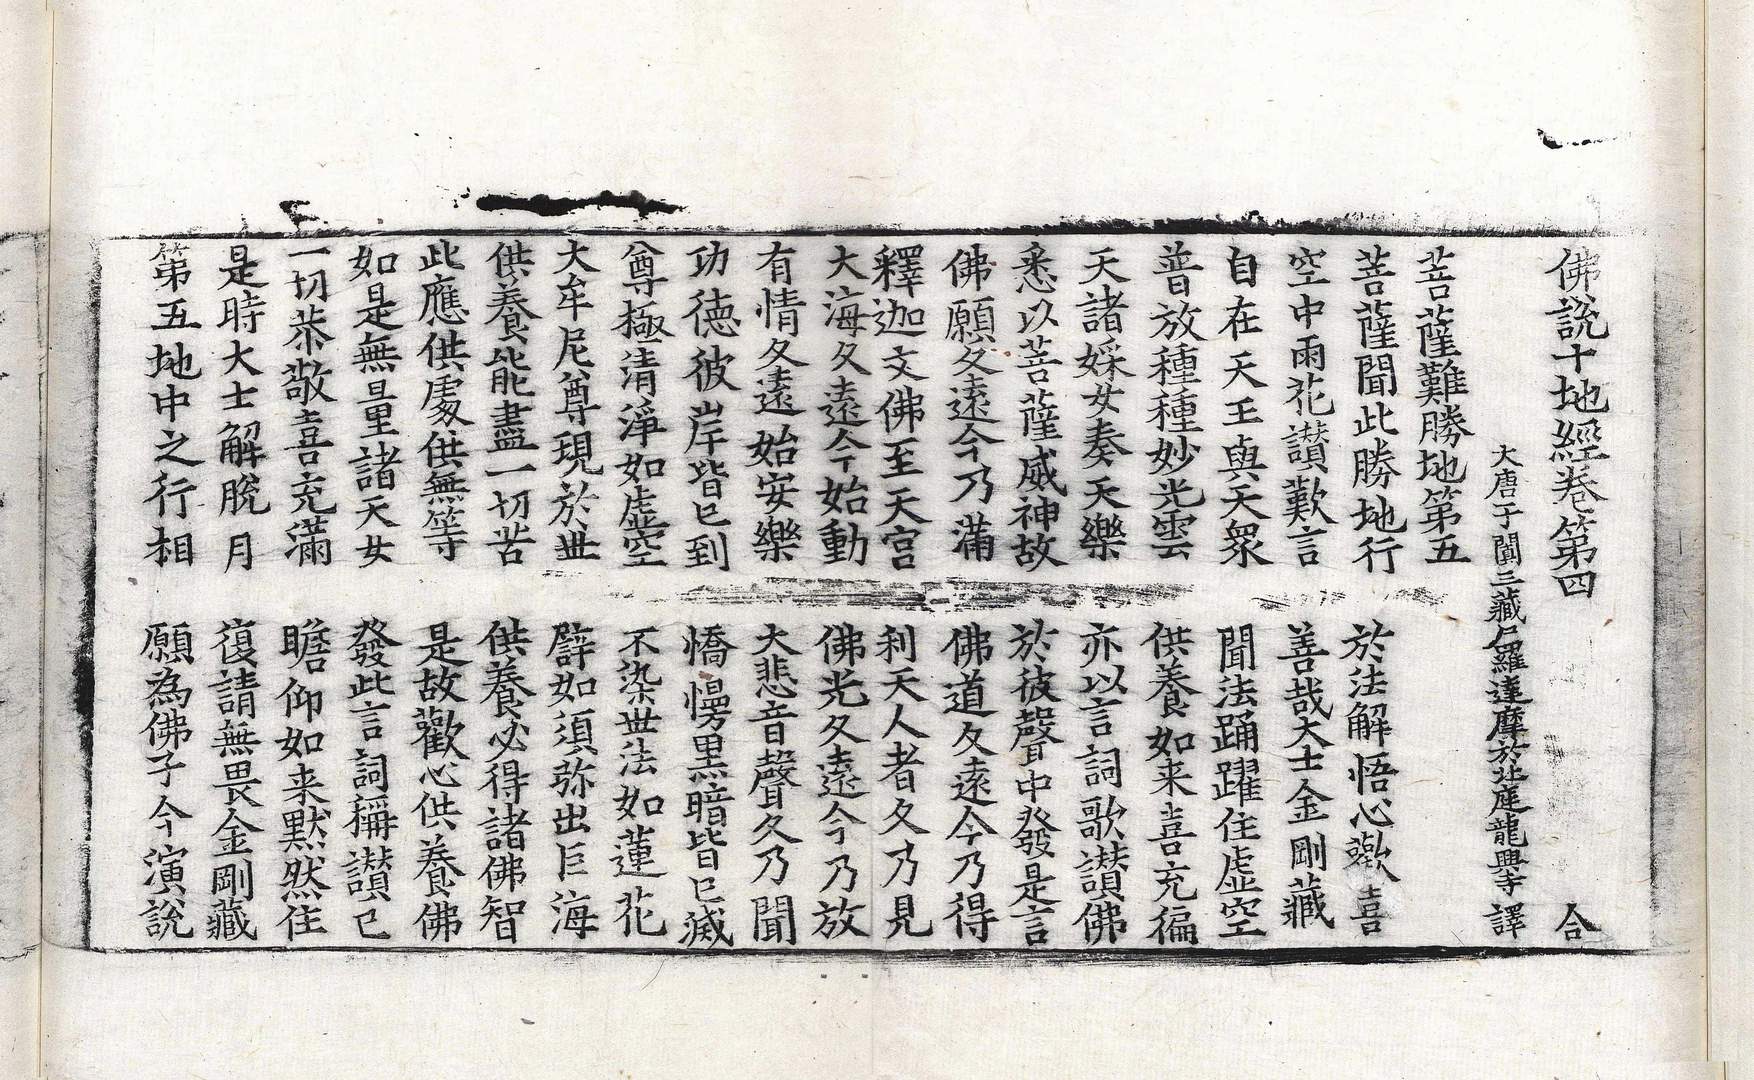 佛說十地經卷第四 合
大唐于闐三藏尸羅達摩於北庭龍興寺 譯
菩薩難勝地第五
菩薩聞此勝地行 於法解悟心歡喜
空中雨花讃歎言 善哉大士金剛藏
自在天王與天眾 聞法踊躍住虛空
普放種種妙光雲 供養如来喜充徧
天諸婇女奏天樂 亦以言詞歌讃佛
悉以菩薩威神故 於彼聲中發是言
佛願久遠今乃滿 佛道久遠今乃得
釋迦文佛至天宮 利天人者久乃見
大海久遠今始動 佛光久遠今乃放
有情久遠始安樂 大悲音聲久乃聞
功德彼岸皆已到 憍慢黑暗皆已滅
尊極清淨如虛空 不染世法如蓮花
大牟尼尊現於世 譬如須弥出巨海
供養能盡一切苦 供養必得諸佛智
此應供處供無等 是故歡心供養佛
如是無量諸天女 發此言詞稱讃已
一切恭敬喜充滿 瞻仰如来默然住
是時大士解脫月 復請無畏金剛藏
第五地中之行相 願為佛子今演說